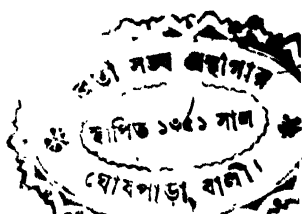 সঙ্ঘ গ্রন্থাগার
স্থাপিত ১৩৫১ সাল
ঘোষপাড়া, বালী।